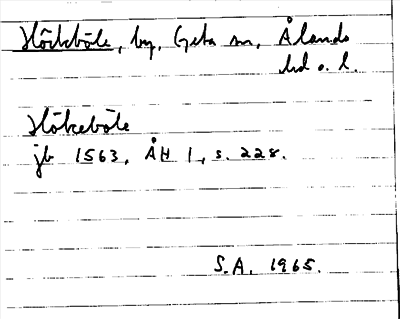 Höckböle, by, Geta sn, Ålands
hd o. l.
Hökeböle
jb 1563, ÅH 1, s. 228.
S.A. 1965.